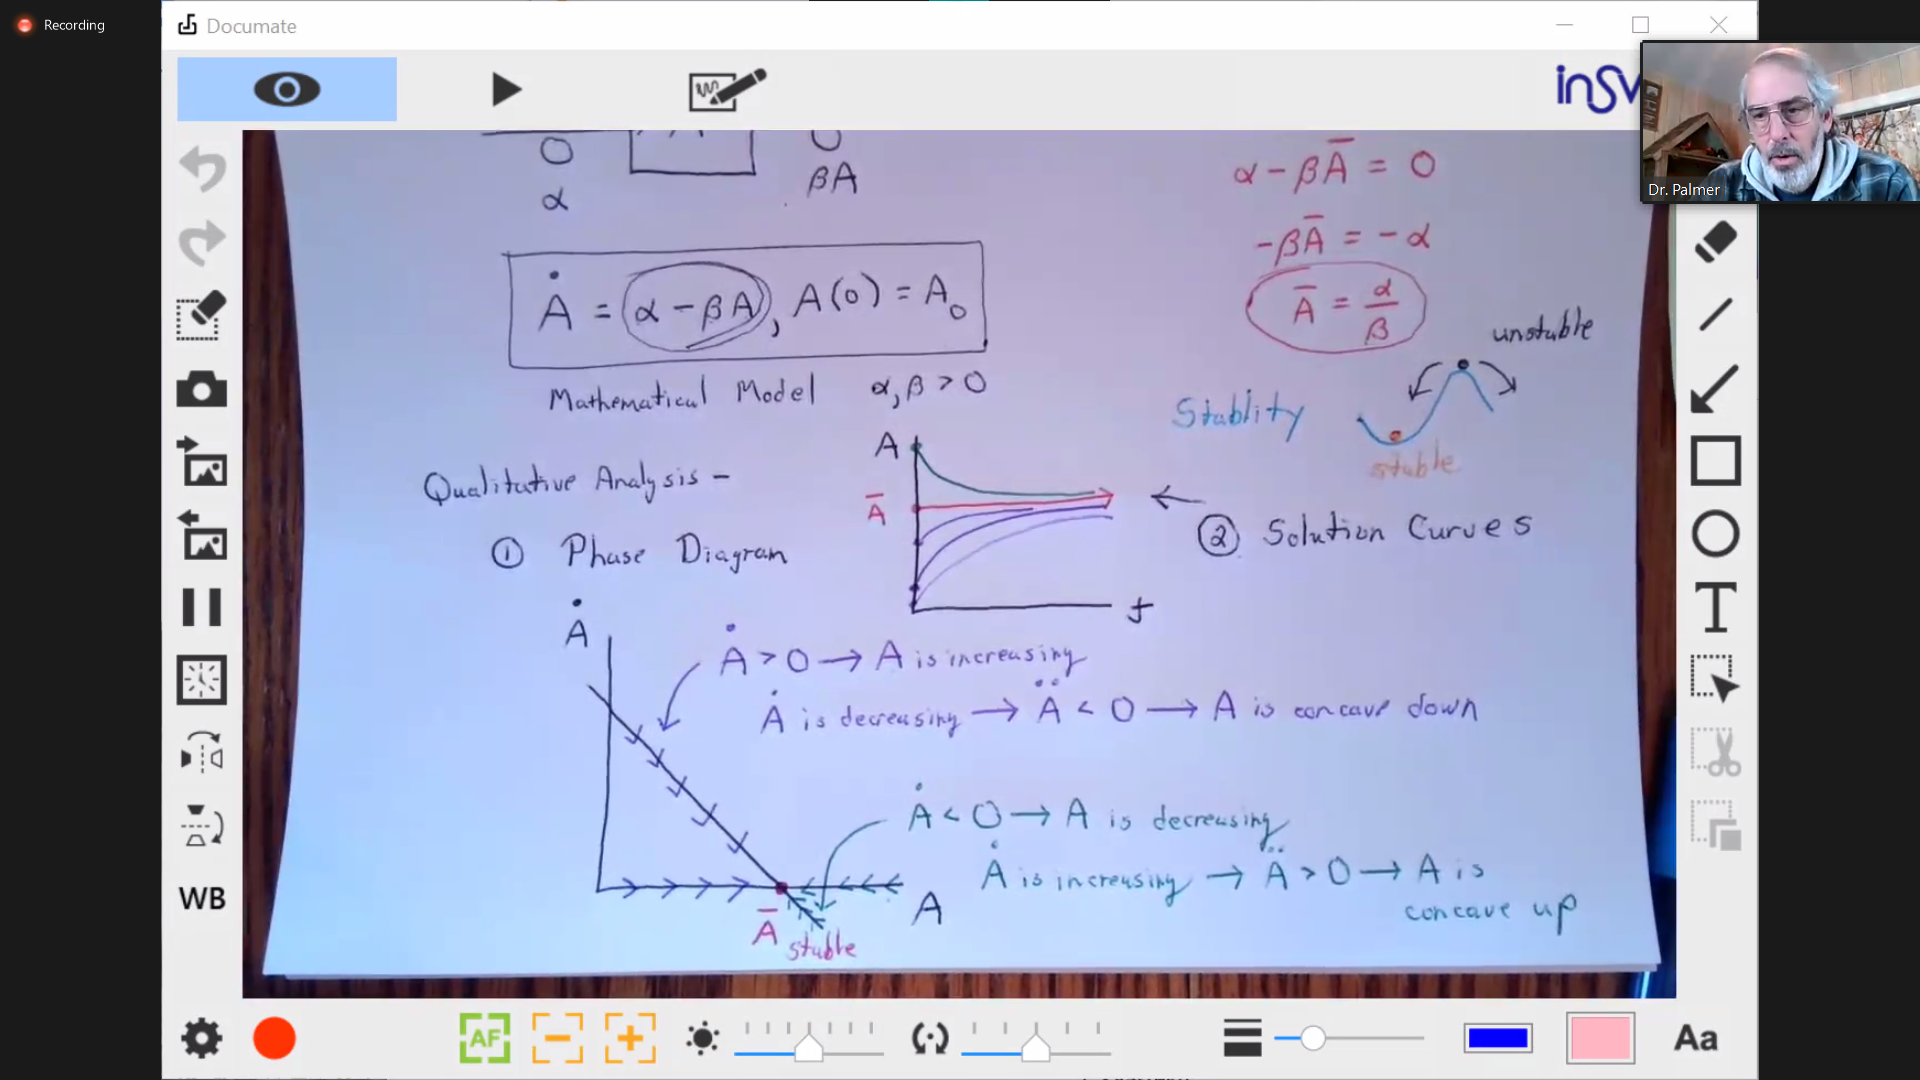 Recording
Documate
inSw
Dr. Palmer
α
βA
α - βĀ = 0
-βĀ = -α
Ā = α/β
Ȧ = α - βA, A(0) = A₀
Mathematical Model α, β > 0
unstable
Stablity
stable
Qualitative Analysis -
① Phase Diagram
A
Ā
t
← ② Solution Curves
Ȧ
Ȧ > 0 → A is increasing
Ȧ is decreasing → Ä < 0 → A is concave down
Ȧ < 0 → A is decreasing
Ȧ is increasing → Ä > 0 → A is
concave up
A
Ā stable
T
WB
AF
Aa